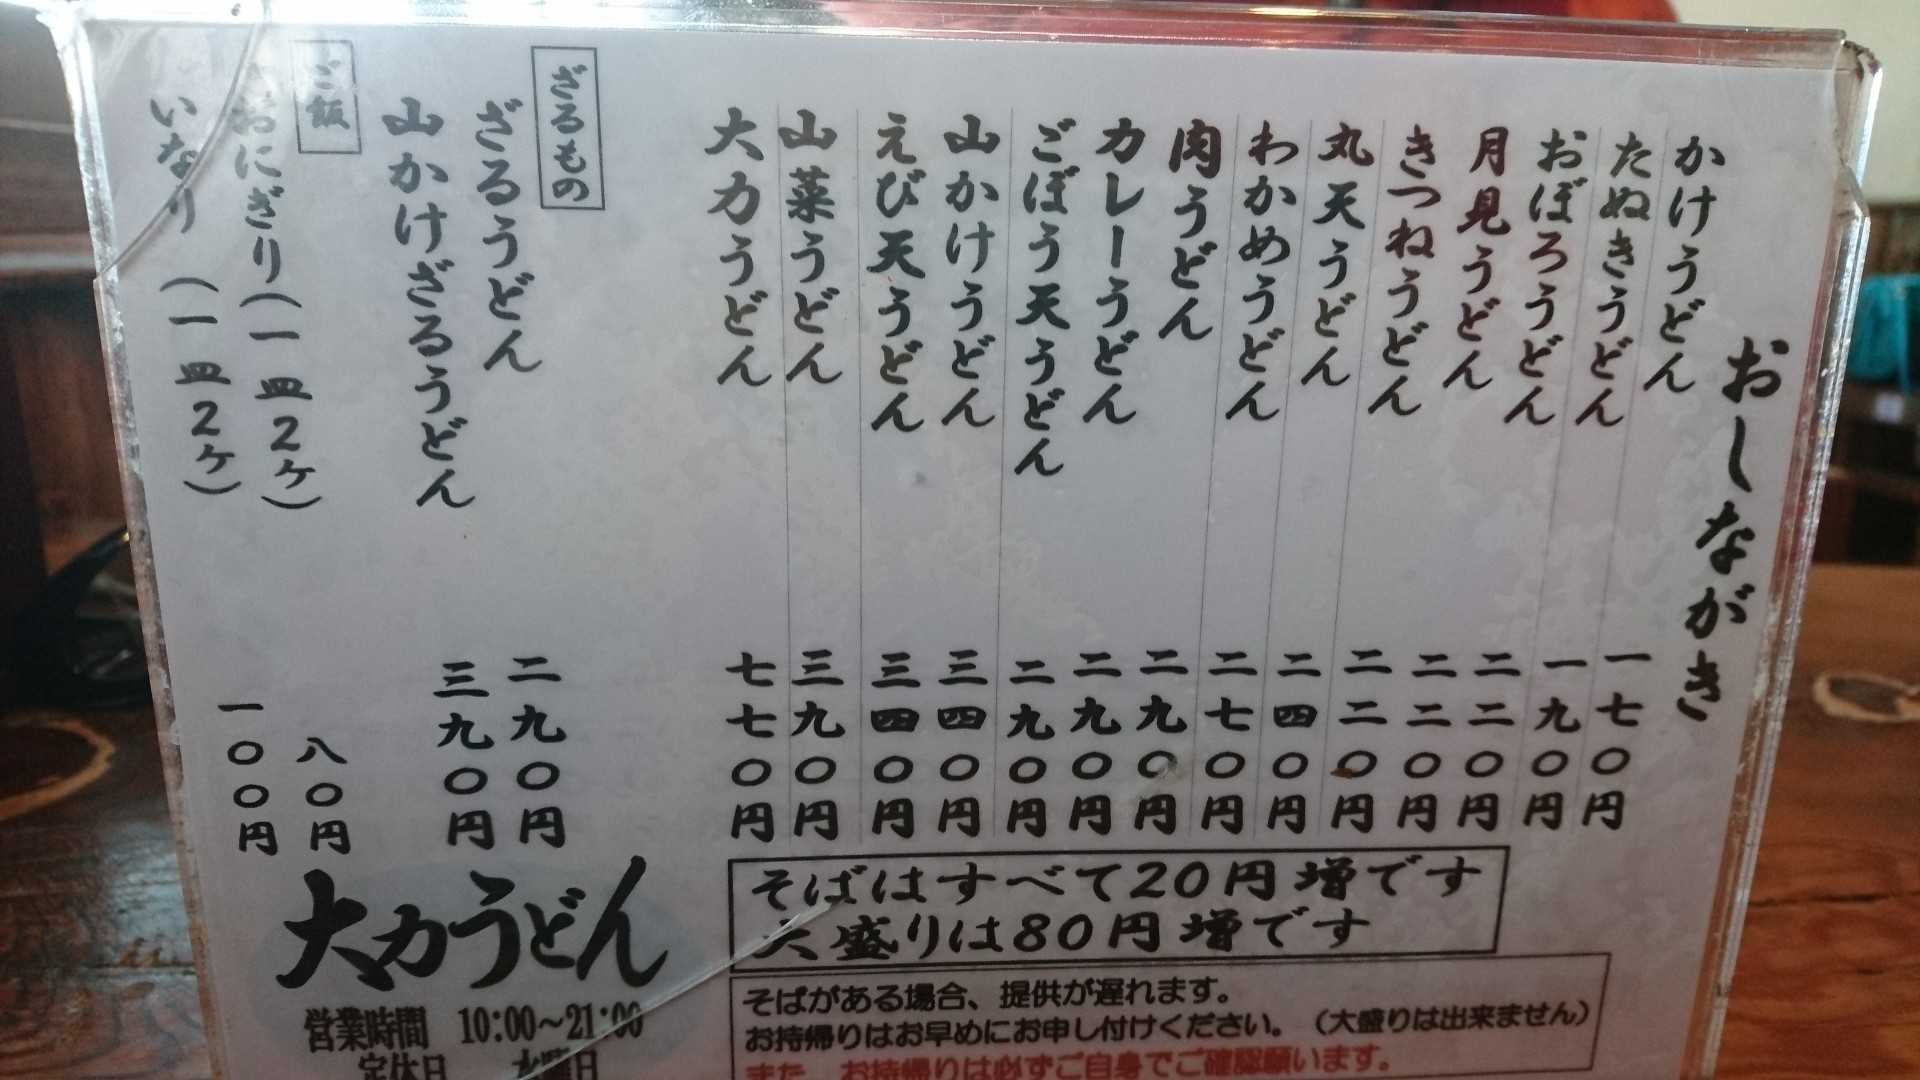 おしながき
かけうどん 一七〇円
たぬきうどん 一九〇円
おぼろうどん 二二〇円
月見うどん 二二〇円
きつねうどん 二二〇円
丸天うどん 二四〇円
わかめうどん 二七〇円
肉うどん 二九〇円
カレーうどん 二九〇円
ごぼう天うどん 二九〇円
山かけうどん 三四〇円
えび天うどん 三四〇円
山菜うどん 三九〇円
大力うどん 七七〇円
ざるもの
ざるうどん 二九〇円
山かけざるうどん 三九〇円
ご飯
おにぎり(一皿2ヶ) 八〇円
いなり(一皿2ヶ) 一〇〇円
そばはすべて20円増です
大盛りは80円増です
そばがある場合、提供が遅れます。
お持帰りはお早めにお申し付けください。(大盛りは出来ません)
また、お持帰りは必ずご自身でご確認願います。
大力うどん
営業時間 10:00～21:00
定休日 水曜日